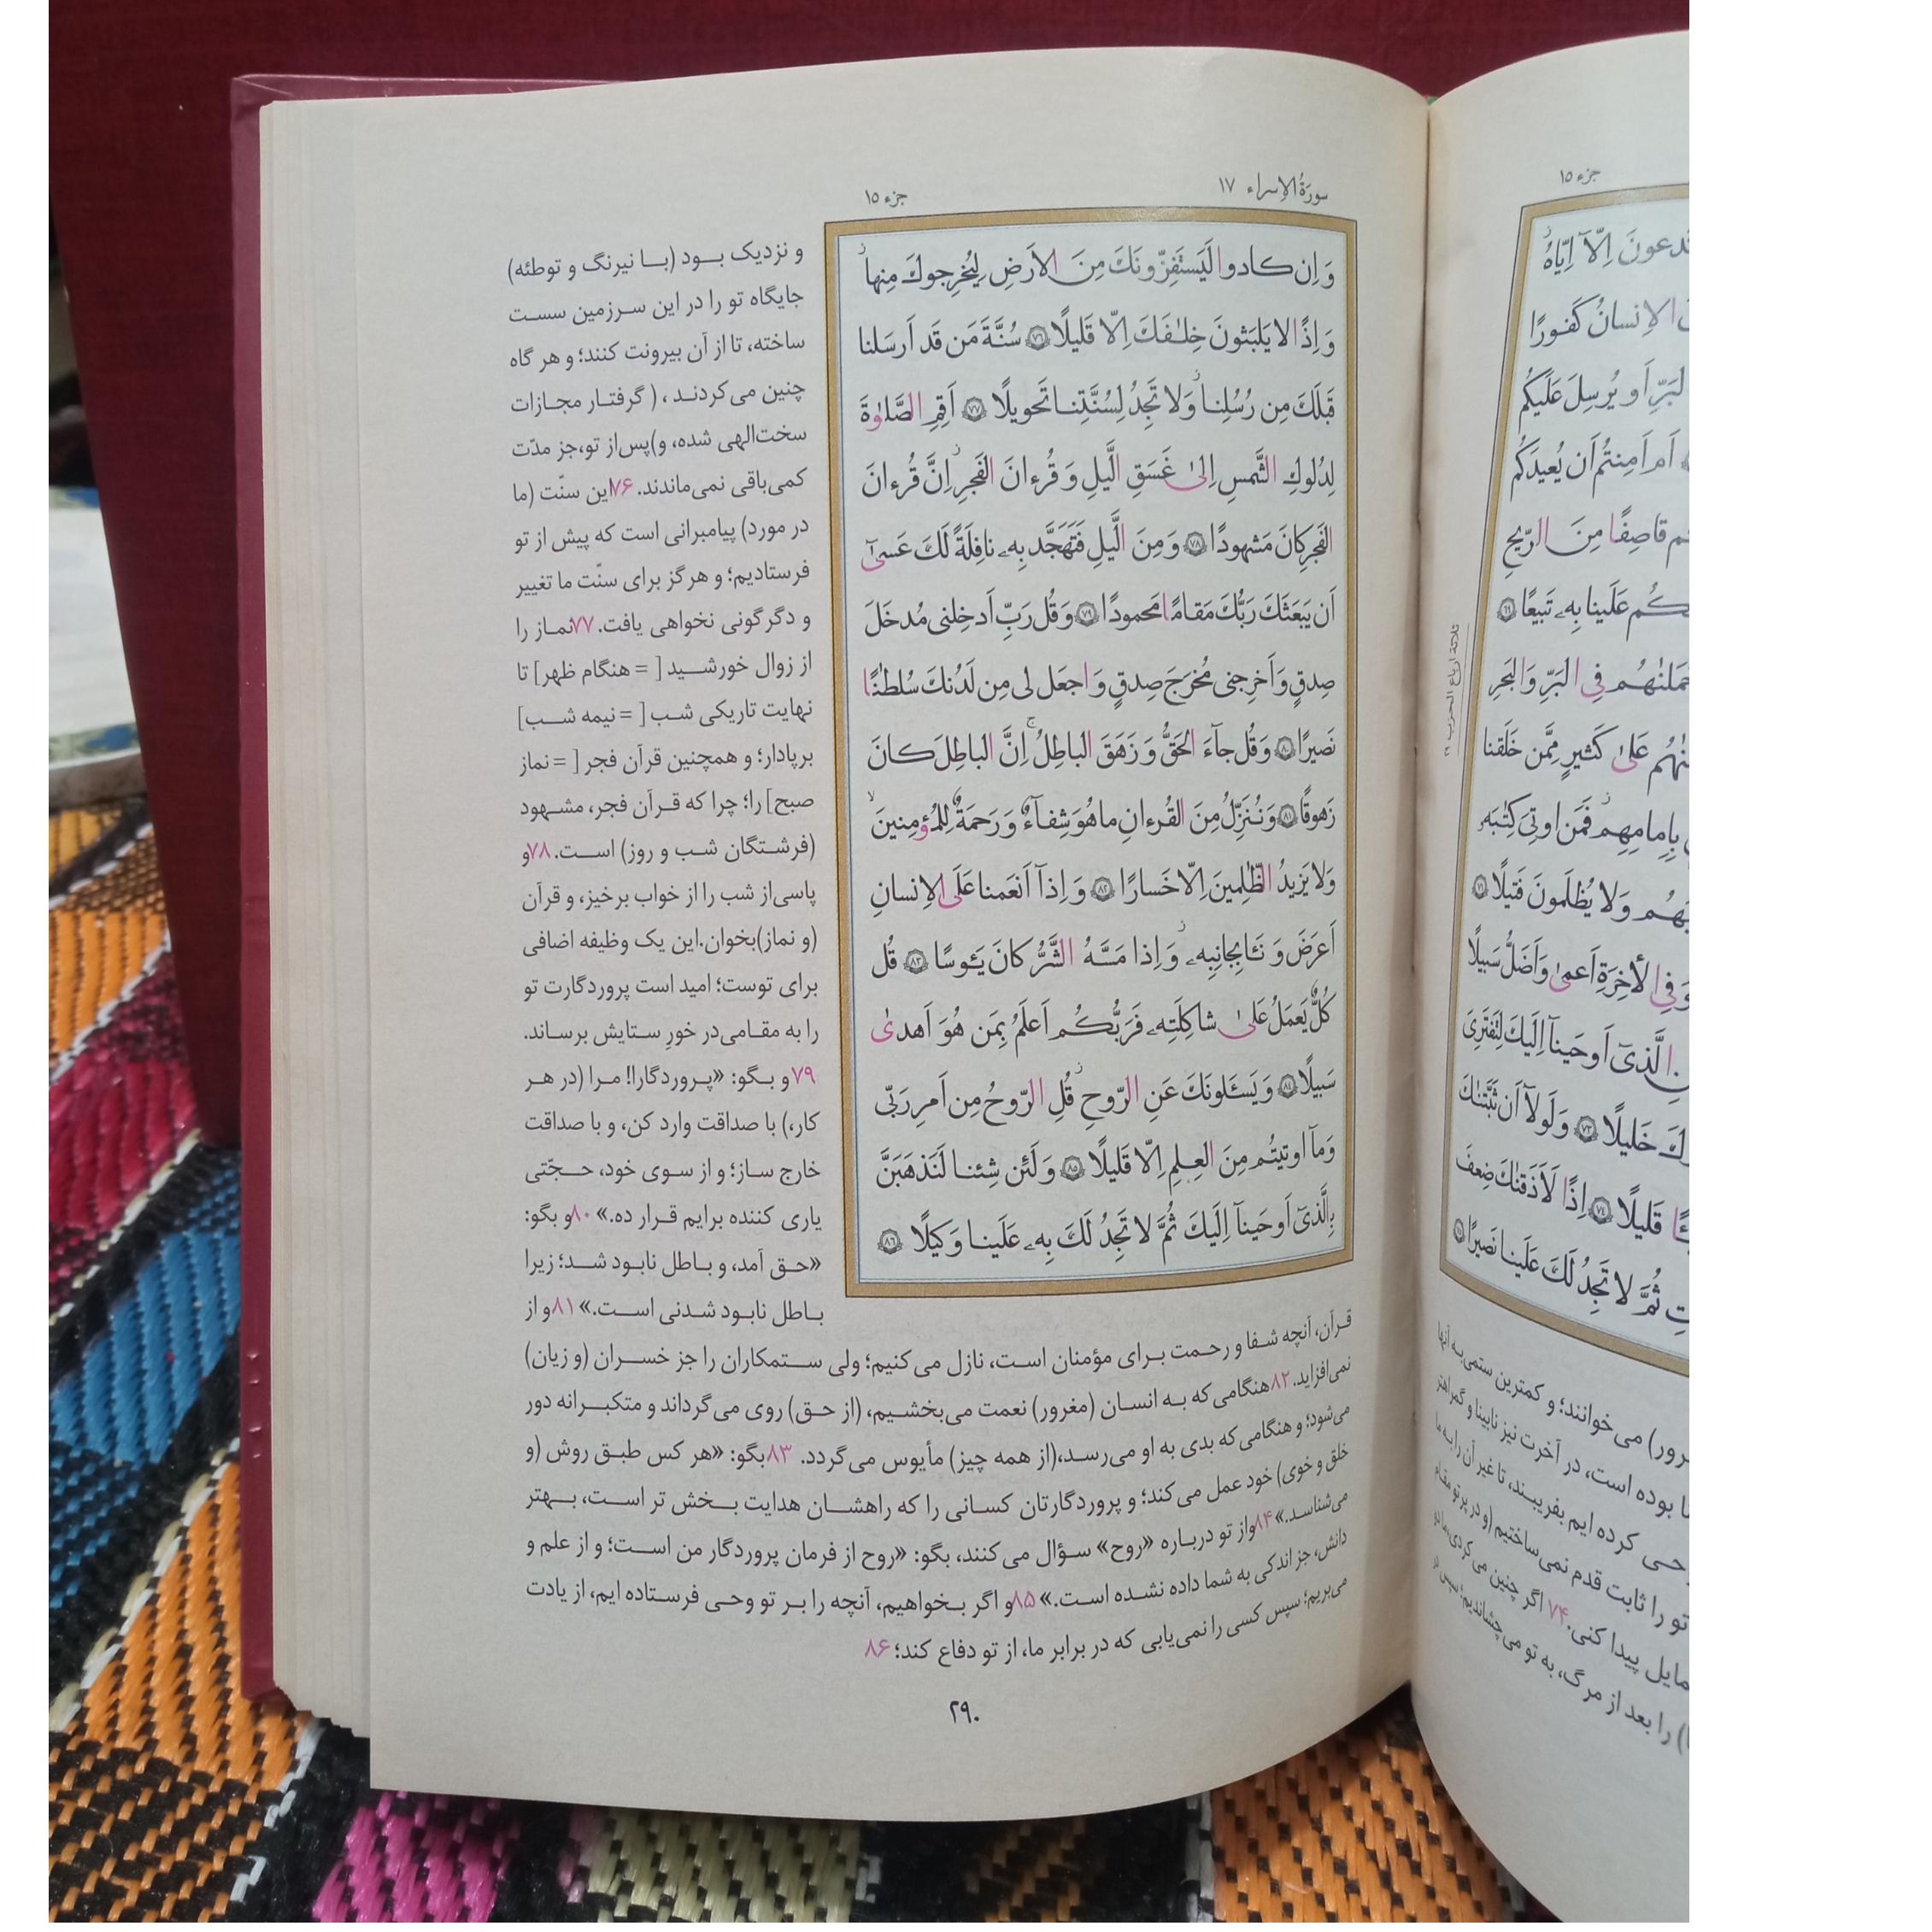 سورَةُ الإسراء ١٧
جزء ١٥
وَ اِن كادوا لَيَستَفِزّونَكَ مِنَ الاَرضِ لِيُخرِجوكَ مِنها ۖ
وَ اِذًا لا يَلبَثونَ خِلـٰفَكَ اِلّا قَليلًا ﴿٧٦﴾ سُنَّةَ مَن قَد اَرسَلنا
قَبلَكَ مِن رُسُلِنا ۖ وَلا تَجِدُ لِسُنَّتِنا تَحويلًا ﴿٧٧﴾ اَقِمِ الصَّلوٰةَ
لِدُلوكِ الشَّمسِ اِلىٰ غَسَقِ الَّيلِ وَ قُرءانَ الفَجرِ ۖ اِنَّ قُرءانَ
الفَجرِ كانَ مَشهودًا ﴿٧٨﴾ وَ مِنَ الَّيلِ فَتَهَجَّد بِهِۦ نافِلَةً لَكَ عَسىٰٓ
اَن يَبعَثَكَ رَبُّكَ مَقامًا مَحمودًا ﴿٧٩﴾ وَ قُل رَبِّ اَدخِلنى مُدخَلَ
صِدقٍ وَ اَخرِجنى مُخرَجَ صِدقٍ وَ اجعَل لى مِن لَدُنكَ سُلطـٰنًا
نَصيرًا ﴿٨٠﴾ وَ قُل جآءَ الحَقُّ وَ زَهَقَ الباطِلُ ۚ اِنَّ الباطِلَ كانَ
زَهوقًا ﴿٨١﴾ وَ نُنَزِّلُ مِنَ القُرءانِ ما هُوَ شِفآءٌ وَ رَحمَةٌ لِلمُؤمِنينَ ۙ
وَلا يَزيدُ الظّـٰلِمينَ اِلّا خَسارًا ﴿٨٢﴾ وَ اِذآ اَنعَمنا عَلَى الاِنسانِ
اَعرَضَ وَ نَـٔا بِجانِبِهِۦ ۖ وَ اِذا مَسَّهُ الشَّرُّ كانَ يَـٔوسًا ﴿٨٣﴾ قُل
كُلٌّ يَعمَلُ عَلىٰ شاكِلَتِهِۦ فَرَبُّكُم اَعلَمُ بِمَن هُوَ اَهدىٰ
سَبيلًا ﴿٨٤﴾ وَ يَسـَٔلونَكَ عَنِ الرّوحِ ۖ قُلِ الرّوحُ مِن اَمرِ رَبّى
وَ مآ اوتيتُم مِنَ العِلمِ اِلّا قَليلًا ﴿٨٥﴾ وَ لَئِن شِئنا لَنَذهَبَنَّ
بِالَّذىٓ اَوحَينآ اِلَيكَ ثُمَّ لا تَجِدُ لَكَ بِهِۦ عَلَينا وَكيلًا ﴿٨٦﴾
و نزدیک بود (با نیرنگ و توطئه)
جایگاه تو را در این سرزمین سست
ساخته، تا از آن بیرونت کنند؛ و هر گاه
چنین می‌کردند، (گرفتار مجازات
سخت‌الهی شده، و)پس‌از تو،جز مدّت
کمی‌باقی نمی‌ماندند. ۷۶این سنّت (ما
در مورد) پیامبرانی است که پیش از تو
فرستادیم؛ و هرگز برای سنّت ما تغییر
و دگرگونی نخواهی یافت. ۷۷نماز را
از زوال خورشید [ = هنگام ظهر] تا
نهایت تاریکی شب [ = نیمه شب]
برپادار؛ و همچنین قرآن فجر [ = نماز
صبح] را؛ چرا که قرآن فجر، مشهود
(فرشتگان شب و روز) است. ۷۸و
پاسی‌از شب را از خواب برخیز، و قرآن
(و نماز)بخوان.این یک وظیفه اضافی
برای توست؛ امید است پروردگارت تو
را به مقامی‌در خورِ ستایش برساند.
۷۹و بگو: «پروردگارا! مرا (در هر
کار،) با صداقت وارد کن، و با صداقت
خارج ساز؛ و از سوی خود، حجّتی
یاری کننده برایم قرار ده.» ۸۰و بگو:
«حق آمد، و باطل نابود شد؛ زیرا
باطل نابود شدنی است.» ۸۱و از
قرآن، آنچه شفا و رحمت برای مؤمنان است، نازل می‌کنیم؛ ولی ستمکاران را جز خسران (و زیان)
نمی‌افزاید. ۸۲هنگامی‌که به انسان (مغرور) نعمت می‌بخشیم، (از حق) روی می‌گرداند و متکبرانه دور
می‌شود؛ و هنگامی‌که بدی به او می‌رسد،(از همه چیز) مأیوس می‌گردد. ۸۳بگو: «هر کس طبق روش (و
خلق و خوی) خود عمل می‌کند؛ و پروردگارتان کسانی را که راهشان هدایت بخش تر است، بهتر
می‌شناسد.» ۸۴واز تو درباره «روح» سؤال می‌کنند، بگو: «روح از فرمان پروردگار من است؛ و از علم و
دانش، جز اندکی به شما داده نشده است.» ۸۵و اگر بخواهیم، آنچه را بر تو وحی فرستاده ایم، از یادت
می‌بریم؛ سپس کسی را نمی‌یابی که در برابر ما، از تو دفاع کند؛ ۸۶
۲۹۰
جزء ١٥
تَدعونَ اِلّآ اِيّاهُ ۖ
الاِنسانُ كَفورًا
البَرِّ اَو يُرسِلَ عَلَيكُم
اَم اَمِنتُم اَن يُعيدَكُم
قاصِفًا مِنَ الرّيحِ
لَكُم عَلَينا بِهِۦ تَبيعًا ﴿٦٩﴾
حَمَلنـٰهُم فِى البَرِّ وَ البَحرِ
عَلىٰ كَثيرٍ مِمَّن خَلَقنا
بِاِمامِهِم ۖ فَمَن اوتِىَ كِتـٰبَهُ
وَلا يُظلَمونَ فَتيلًا ﴿٧١﴾
فِى الأخِرَةِ اَعمىٰ وَ اَضَلُّ سَبيلًا
الَّذىٓ اَوحَينآ اِلَيكَ لِتَفتَرِىَ
خَليلًا ﴿٧٣﴾ وَ لَولآ اَن ثَبَّتنـٰكَ
قَليلًا ﴿٧٤﴾ اِذًا لَاَذَقنـٰكَ ضِعفَ
ثُمَّ لا تَجِدُ لَكَ عَلَينا نَصيرًا ﴿٧٥﴾
ثلاثة ارباع الحزب ۲۹
می‌خوانند؛ و کمترین ستمی‌به آنها
بوده است، در آخرت نیز نابینا و گمراهتر
کرده ایم بفریبند، تا غیر آن را به ما
تو را ثابت قدم نمی‌ساختیم (و در پرتو مقام
پیدا کنی. ۷۴اگر چنین می‌کردی،
را بعد از مرگ، به تو می‌چشاندیم؛ سپس در